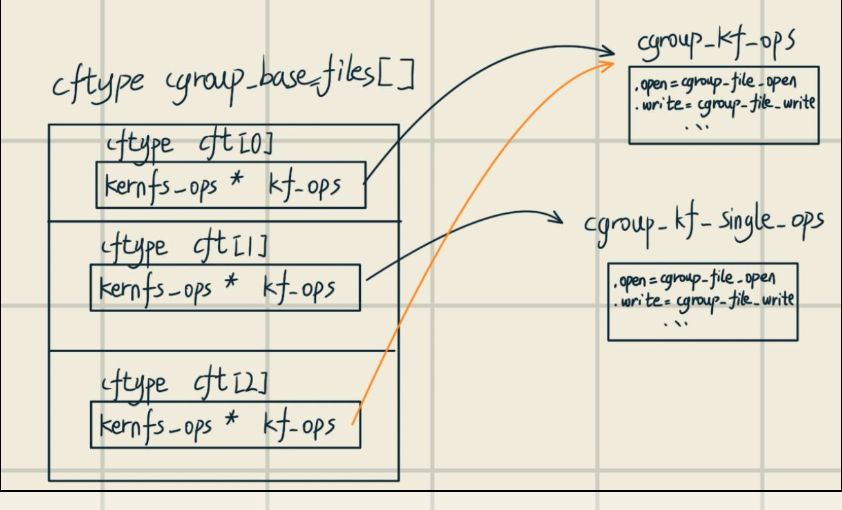 cftype cgroup_base_files[]
cftype cft[0]
kernfs_ops * kf_ops
cftype cft[1]
kernfs_ops * kf_ops
cftype cft[2]
kernfs_ops * kf_ops
cgroup_kf_ops
.open=cgroup_file_open
.write=cgroup_file_write
...
cgroup_kf_single_ops
.open=cgroup_file_open
.write=cgroup_file_write
...